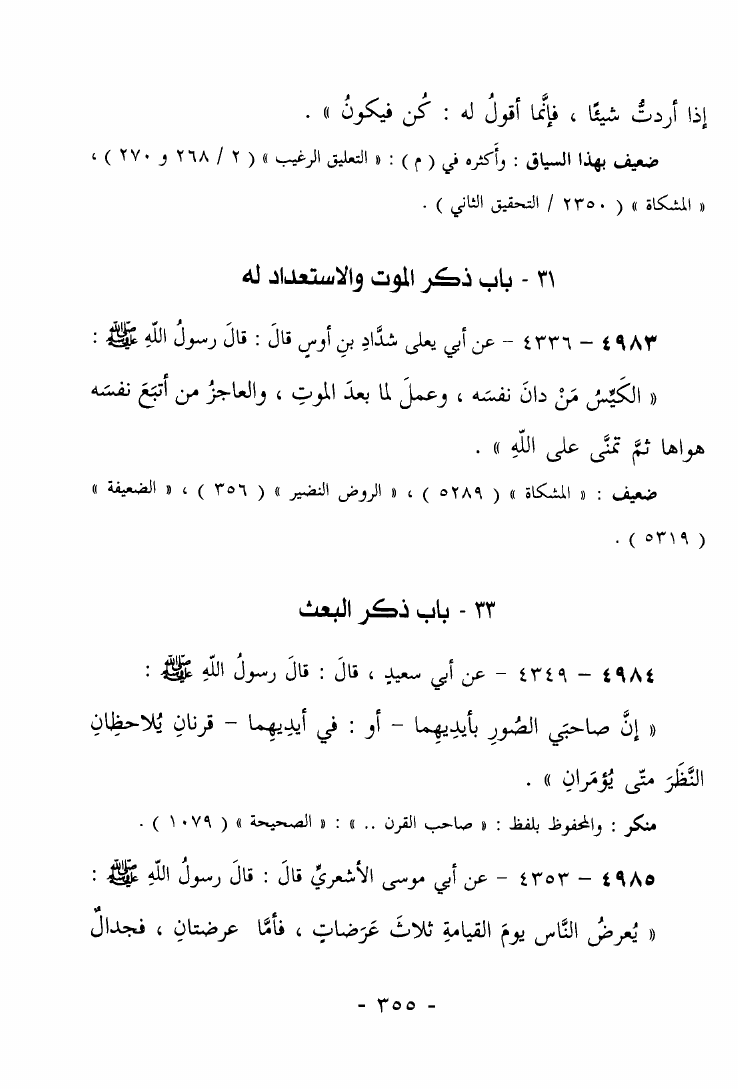 إذا أردتُّ شيئًا ، فإنَّما أقولُ له : كُن فيكونُ » .
ضعيف بهذا السياق : وأكثره في ( م ) : « التعليق الرغيب » ( ٢ / ٢٦٨ و ٢٧٠ ) ،
« المشكاة » ( ٢٣٥٠ / التحقيق الثاني ) .
٣١ - باب ذكر الموت والاستعداد له
٤٩٨٣ – ٤٣٣٦ – عن أبي يعلى شدَّادِ بنِ أوسٍ قالَ : قالَ رسولُ اللّهِ ﷺ :
« الكَيِّسُ مَنْ دانَ نفسَه ، وعملَ لما بعدَ الموتِ ، والعاجزُ من أتبَعَ نفسَه
هواها ثمَّ تمنَّى على اللّهِ » .
ضعيف : « المشكاة » ( ٥٢٨٩ ) ، « الروض النضير » ( ٣٥٦ ) ، « الضعيفة »
( ٥٣١٩ ) .
٣٣ - باب ذكر البعث
٤٩٨٤ – ٤٣٤٩ – عن أبي سعيدٍ ، قالَ : قالَ رسولُ اللّهِ ﷺ :
« إنَّ صاحبَي الصُورِ بأيدِيهِما – أو : في أيديهِما – قرنانِ يُلاحظِانِ
النَّظَرَ متّى يُؤمَرانِ » .
منكر : والمحفوظ بلفظ : « صاحب القرن .. » : « الصحيحة » ( ١٠٧٩ ) .
٤٩٨٥ – ٤٣٥٣ – عن أبي موسى الأشعريِّ قالَ : قالَ رسولُ اللّهِ ﷺ :
« يُعرضُ النَّاس يومَ القيامةِ ثلاثَ عَرَضاتٍ ، فأمَّا عرضتانِ ، فجدالٌ
- ٣٥٥ -